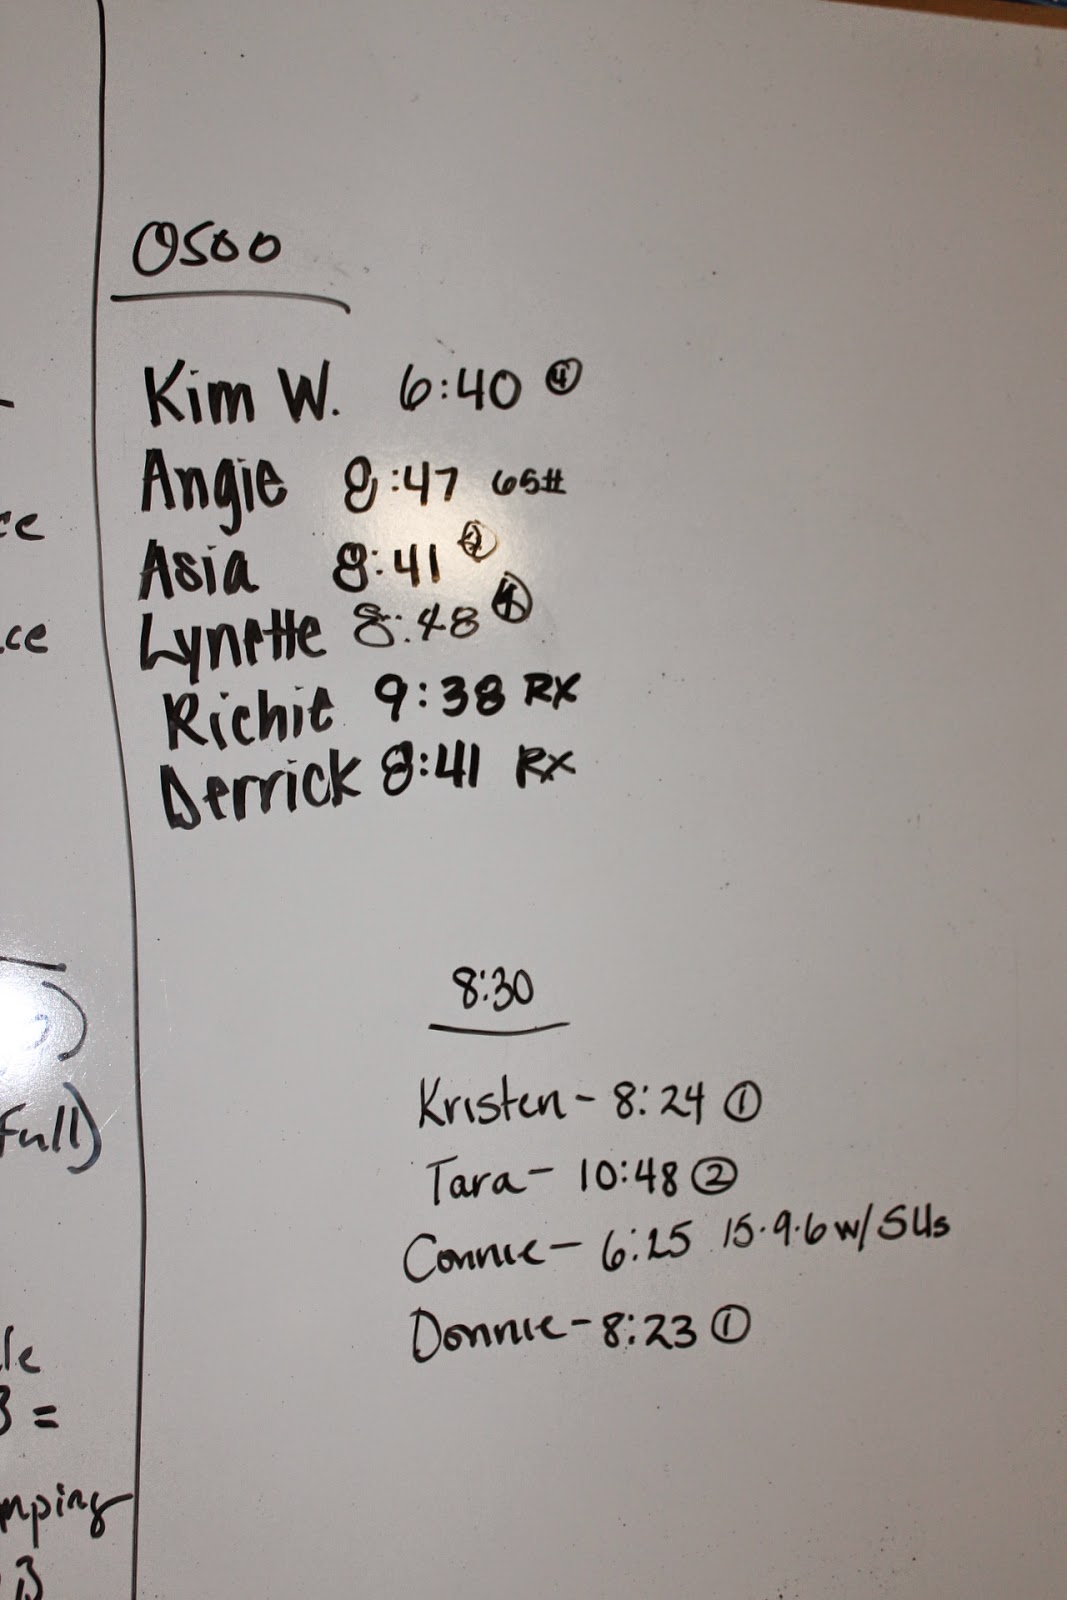 0500
Kim W. 6:40 ④
Angie 8:47 65#
Asia 8:41
Lynette 8:48 ④
Richie 9:38 RX
Derrick 8:41 RX
8:30
Kristen - 8:24 ①
Tara - 10:48 ②
Connie - 6:25 15.9.6 w/ SUs
Donnie - 8:23 ①
ce
ce
full)
le
3 =
mping
B